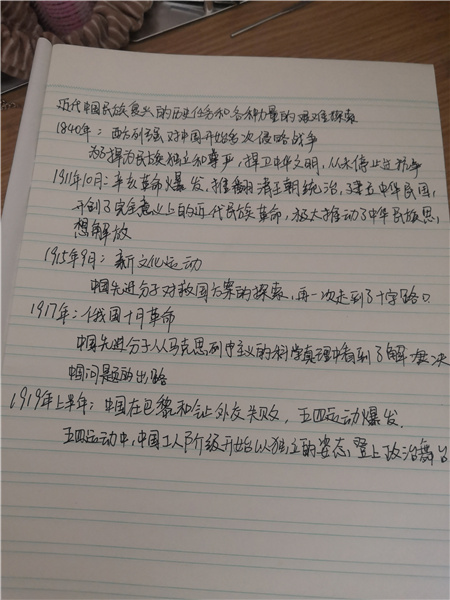 近代中国民族复兴的历史任务和各种力量的艰难探索
1840年：西方列强对中国开始多次侵略战争
为了捍卫民族独立和尊严，捍卫中华文明，从未停止过抗争
1911年10月：辛亥革命爆发，推翻清王朝统治，建立中华民国，
开创了完全意义上的近代民族革命，极大推动了中华民族思
想解放
1915年9月：新文化运动
中国先进分子对救国方案的探索，再一次走到了十字路口
1917年：俄国十月革命
中国先进分子从马克思列宁主义的科学真理中看到了解决
中国问题的出路
1919年上半年：中国在巴黎和会上外交失败，五四运动爆发.
五四运动中，中国工人阶级开始以独立的姿态，登上政治舞台